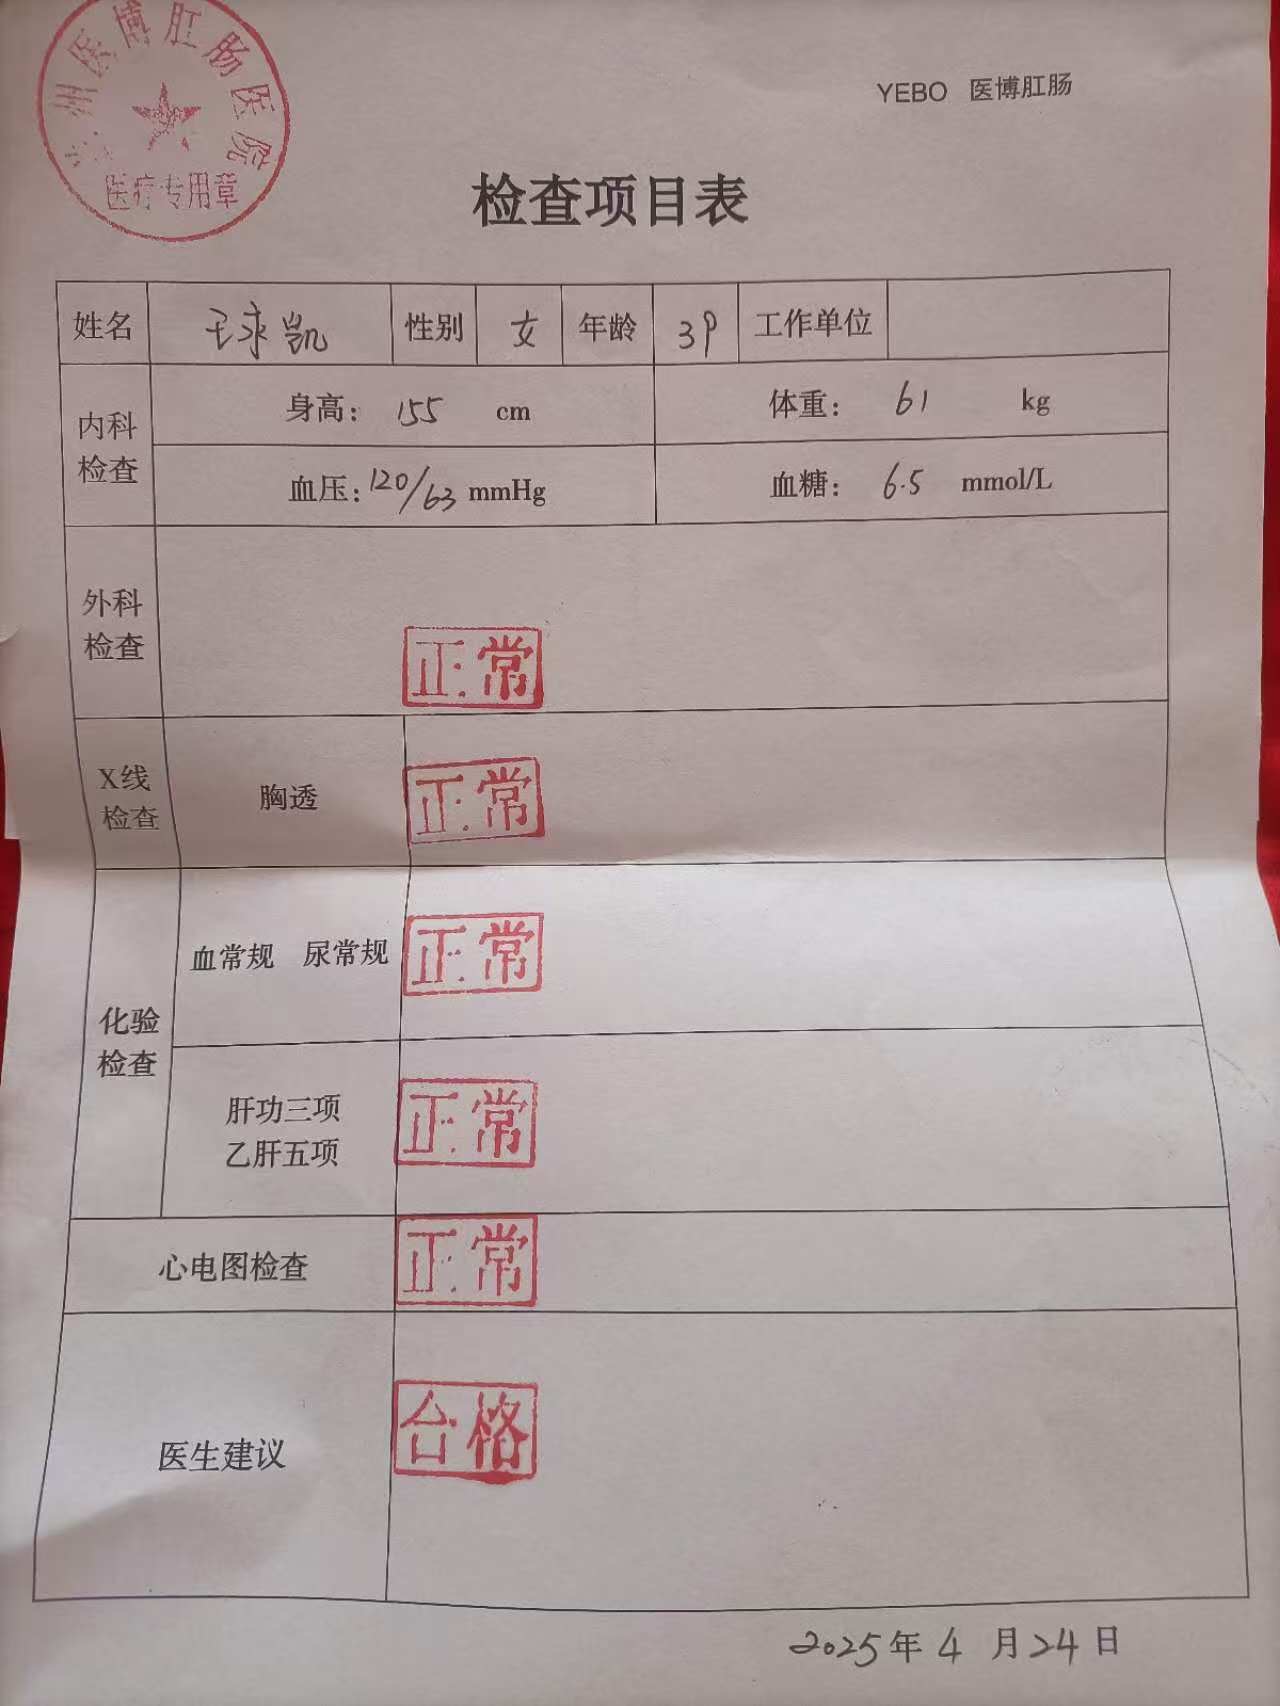 州医博肛肠医院
医疗专用章
YEBO 医博肛肠
检查项目表
姓名 王求凯 性别 女 年龄 39 工作单位
内科检查 身高: 155 cm 体重: 61 kg
血压: 120/63 mmHg 血糖: 6.5 mmol/L
外科检查 正常
X线检查 胸透 正常
化验检查 血常规 尿常规 正常
肝功三项
乙肝五项 正常
心电图检查 正常
医生建议 合格
2025年4月24日